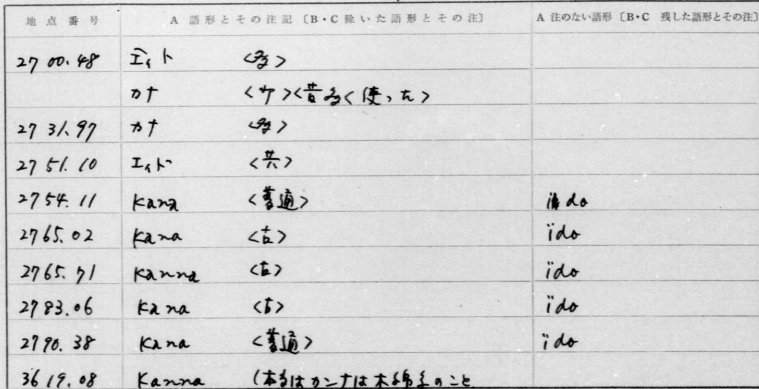 地点番号 A 語形とその注記〔B・C 除いた語形とその注〕 A 注のない語形〔B・C 残した語形とその注〕
27 00.48 エィト <多>
カナ <少><昔多く使った>
27 31.97 カナ <多>
27 51.10 エィド <共>
27 54.11 Kana <普通> ido
27 65.02 Kana <古> ïdo
27 65.71 Kanna <古> ïdo
27 83.06 Kana <古> ïdo
27 90.38 Kana <普通> ïdo
36 19.08 Kanna (本当はカンナは木綿糸のこと